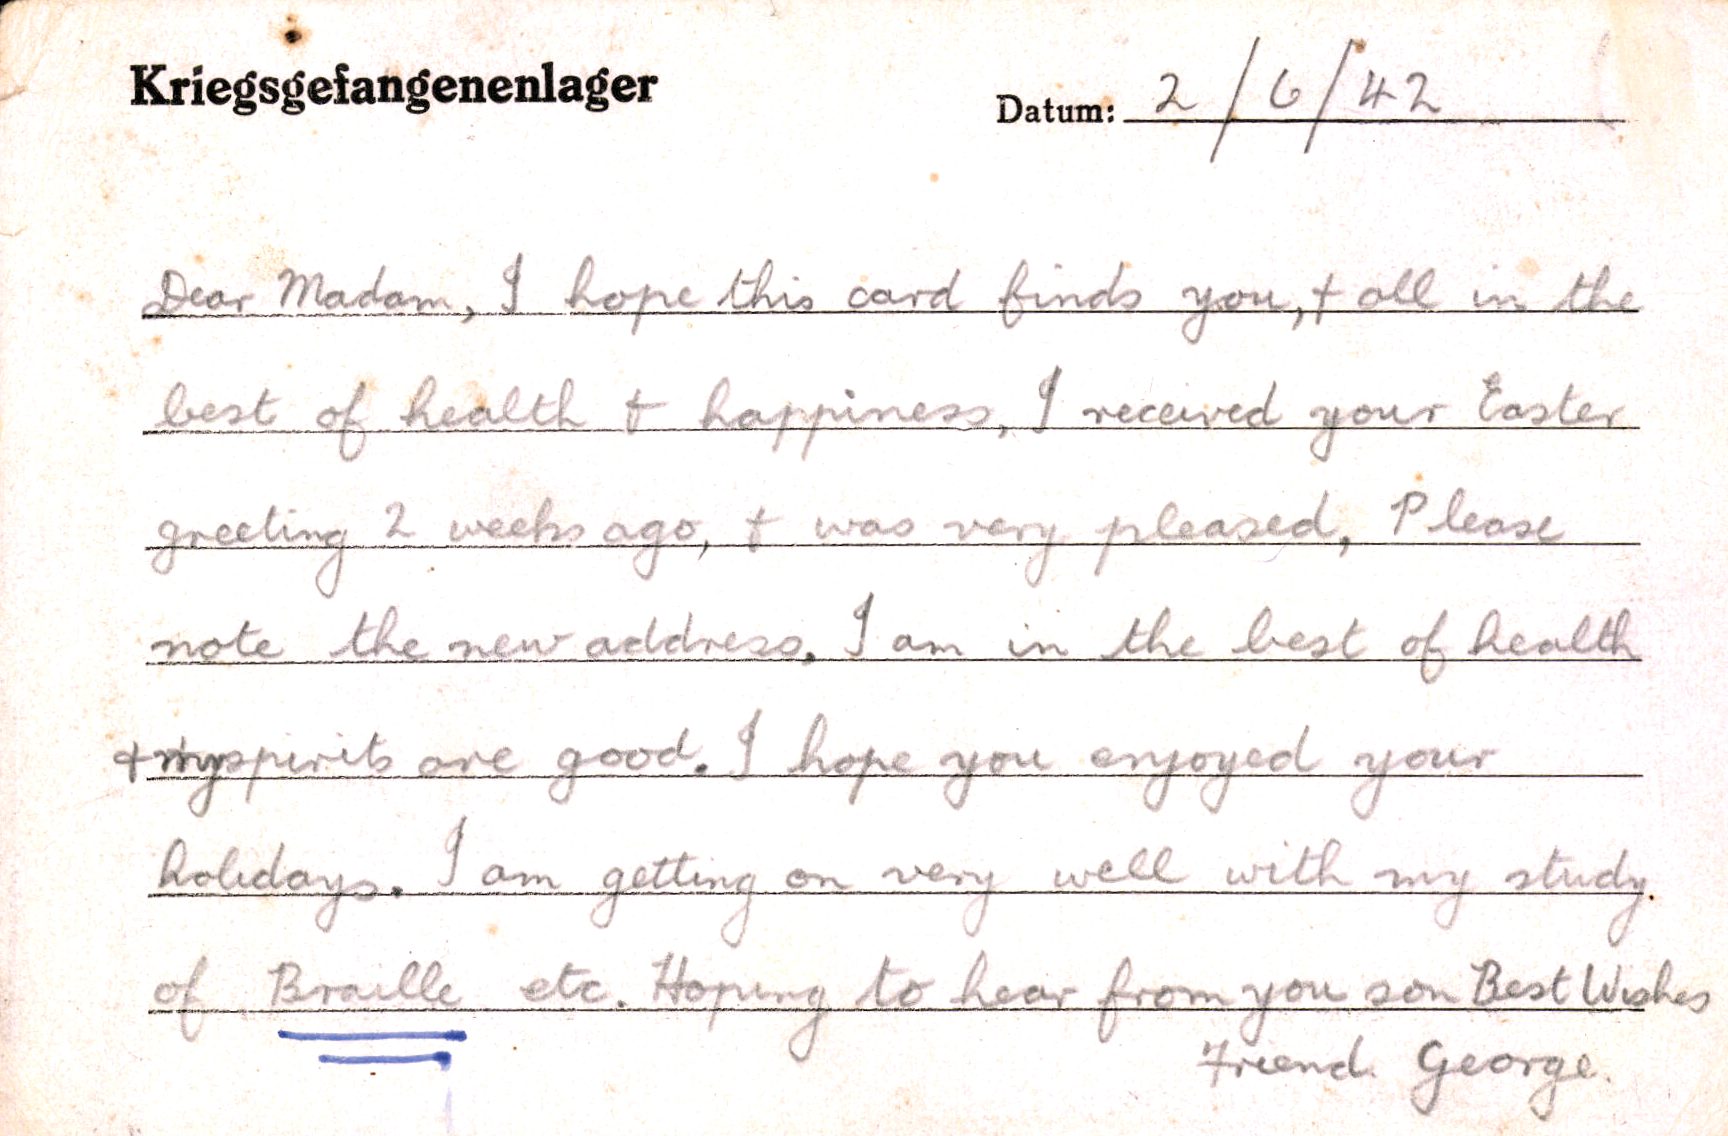 Kriegsgefangenenlager
Datum: 2/6/42
Dear Madam, I hope this card finds you, + all in the
best of health + happiness, I received your Easter
greeting 2 weeks ago, + was very pleased, Please
note the new address. I am in the best of health
+ my spirits are good. I hope you enjoyed your
holidays. I am getting on very well with my study.
of Braille etc. Hoping to hear from you son Best Wishes
Friend George.